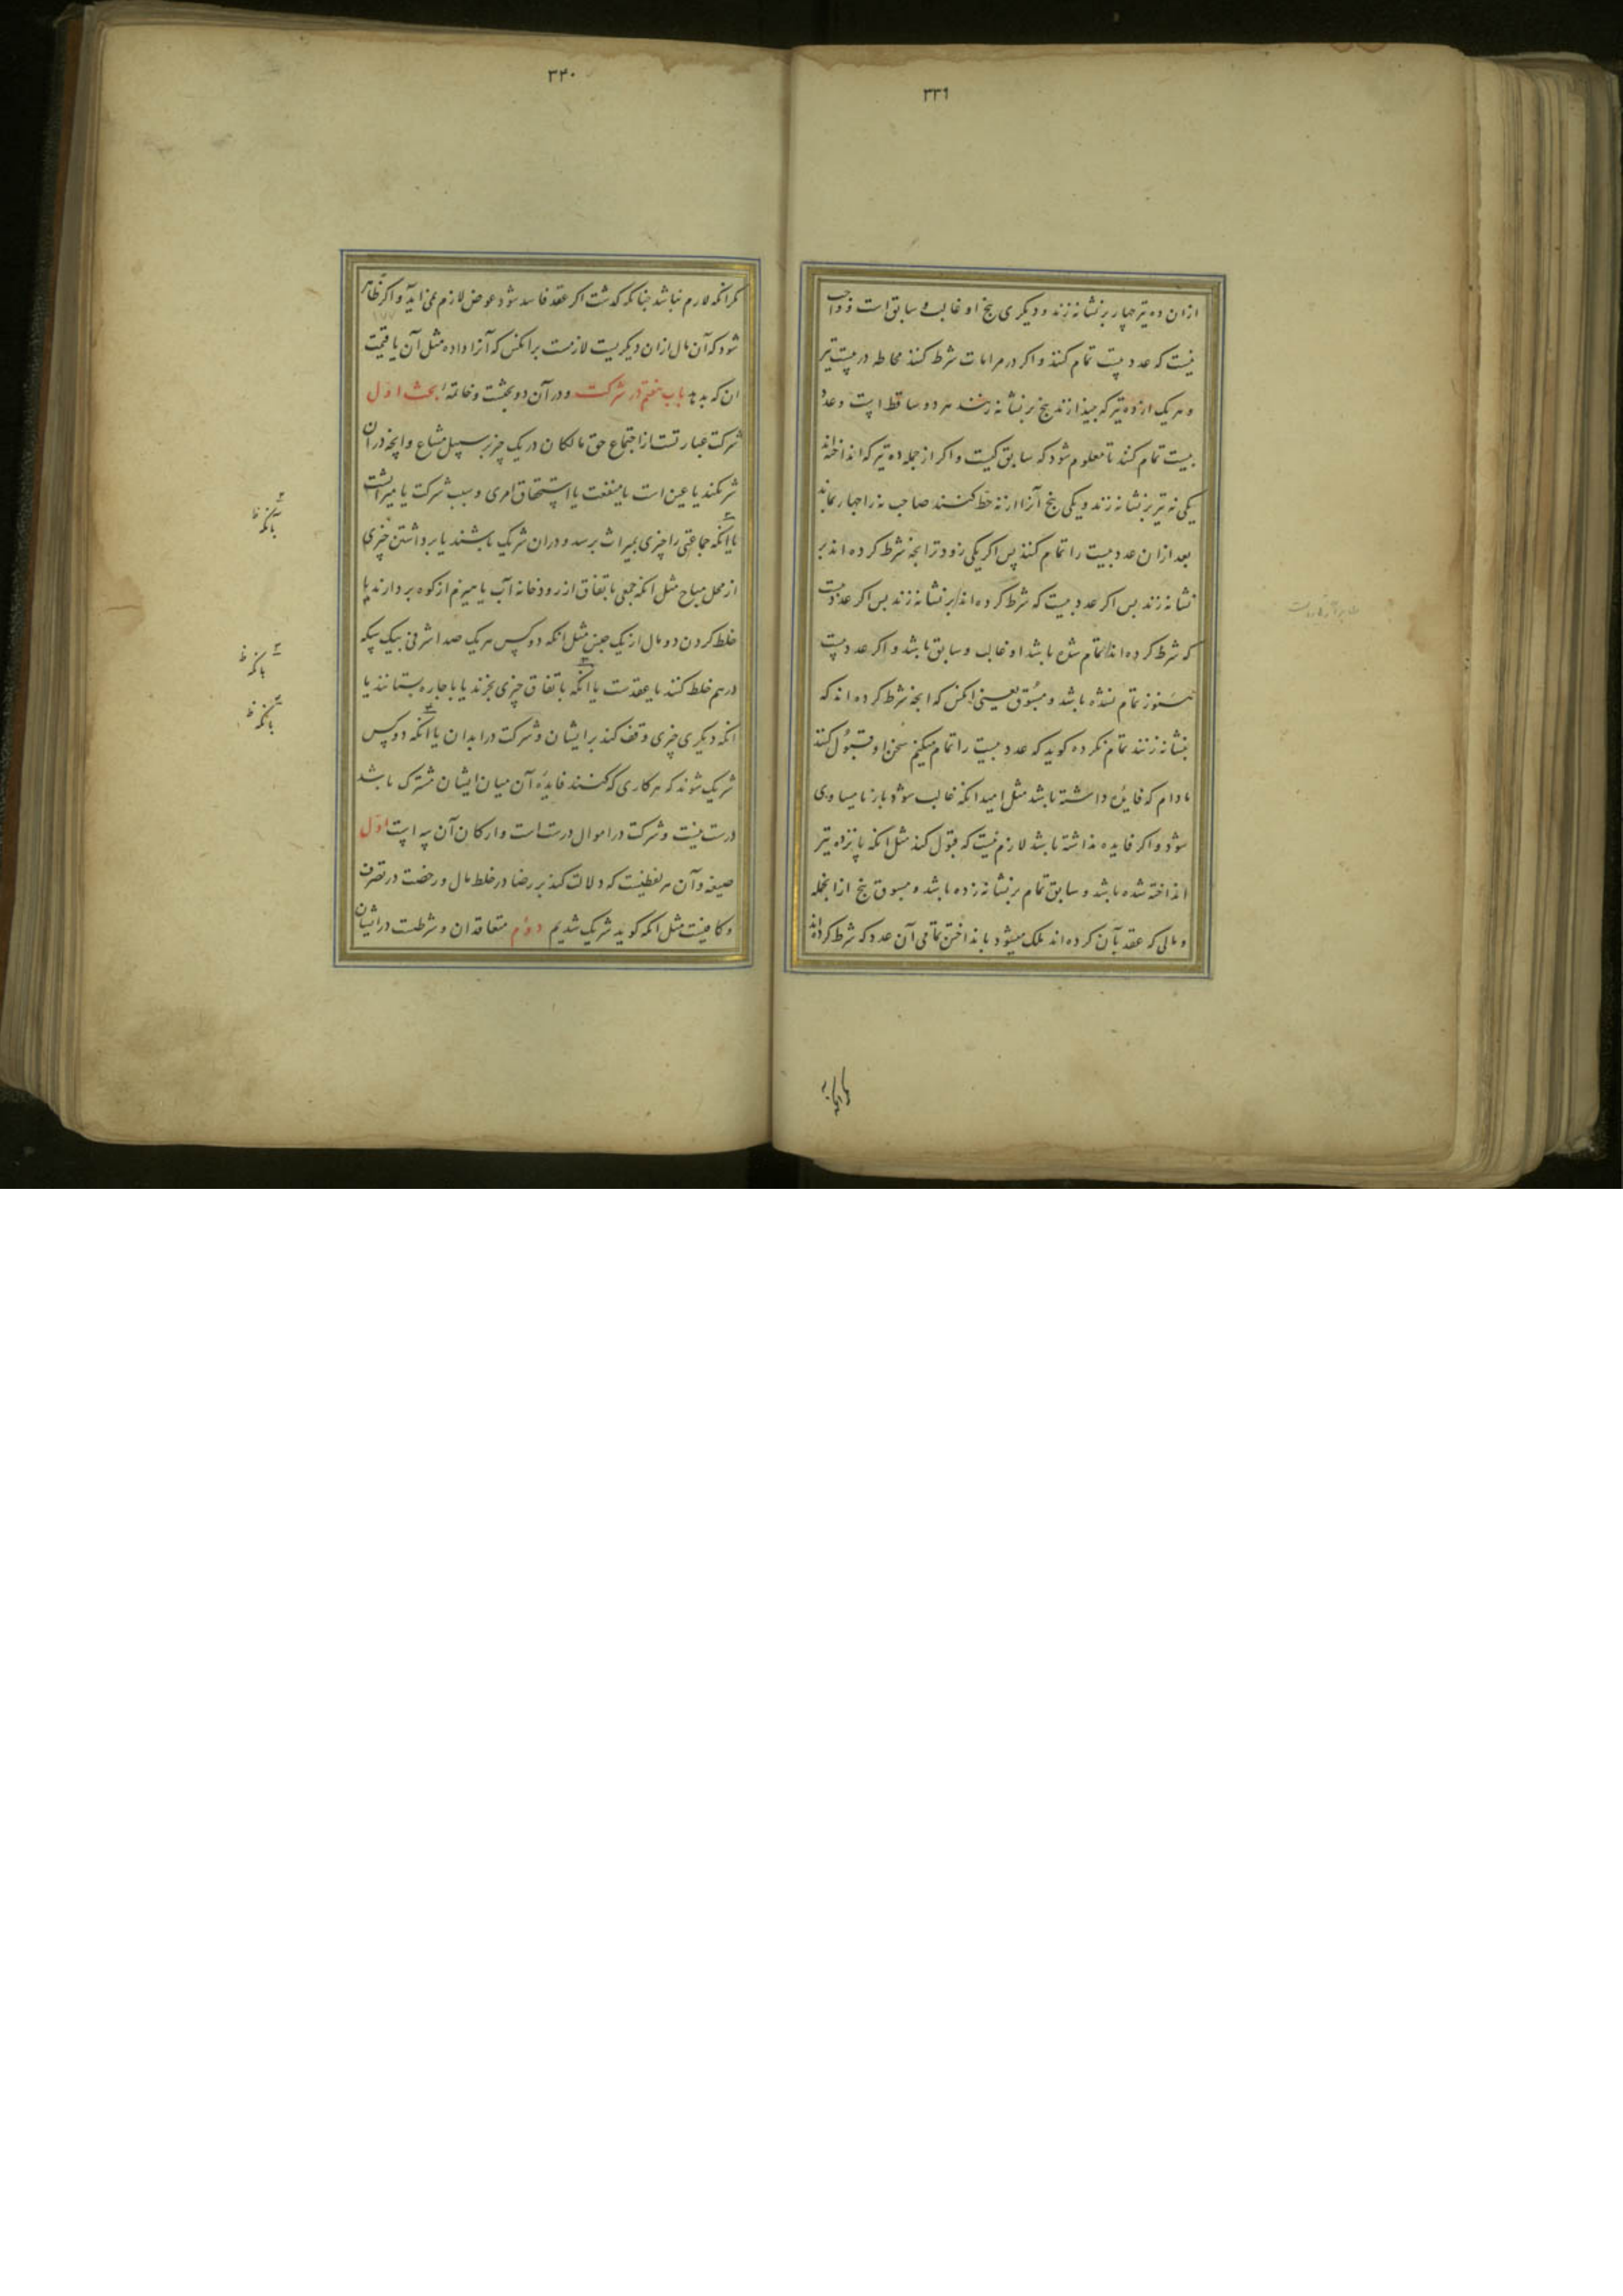 ۳۳۹
ازان ده تیر چهار بر نشانه زند و دیکری پنج او غالب و سابق است و واجب
نیست که عدد بیست تمام کنند و اکر در مرامات شرط کنند محاطه در بیست تیر
و هر یک از ده تیر که بیندازند پنج بر نشانه زنند هر دو ساقط است و عدد
بیست تمام کنند تا معلوم شود که سابق کیست و اکر از جمله ده تیر که انداخته‌اند
یکی نه تیر بر نشانه زند و یکی پنج آنرا از نه حط کنند صاحب نه را چهار بماند
بعد ازان عدد بیست را تمام کنند پس اکر یکی زودتر انچه شرط کرده‌اند بر
نشانه زند پس اکر عدد بیست که شرط کرده‌اند بر نشانه زند پس اکر عدد بیست
که شرط کرده‌اند تمام شده باشد او غالب و سابق باشد و اکر عدد بیست
هنوز تمام نشده باشد و مسبوق یعنی انکس که انچه شرط کرده‌اند که
بنشانه زنند تمام نکرده کوید که عدد بیست را تمام میکنیم سخن او قبول کنند
مادام که فایده داشته باشد مثل امید انکه غالب شود یا با مساوی
شود و اکر فایده نداشته باشد لازم نیست که قبول کند مثل انکه پانزده تیر
انداخته شده باشد و سابق تمام بر نشانه زده باشد و مسبوق پنج از انجمله
و مالی که عقد بآن کرده‌اند ملک میشود بانداختن تمامی آن عدد که شرط کرده‌اند
۳۴۰
مکر انکه لازم نباشد چنانکه کذشت اکر عقد فاسد شود عوض لازم نمی‌اید و اکر ظاهر
شود که آن مال ازان دیکریست لازمست بر انکس که آنرا داده مثل آن یا قیمت
ان که بدهد باب هفتم در شرکت و در آن دو بحثست و خاتمهٔ بحث اول
شرکت عبارتست از اجتماع حق مالکان در یک چیز بر سبیل مشاع و انچه در آن
شریکند یا عین است یا منفعت یا استحقاق امری و سبب شرکت یا میراثست
یا انکه جماعتی را چیزی بمیراث برسد و دران شریک باشند یا برداشتن چیزی
از محل مباح مثل انکه جمعی باتفاق از رودخانه آب یا هیزم از کوه بردارند یا
خلط کردن دو مال از یک جنس مثل انکه دو کس هر یک صد اشرفی بیک سکه
درهم خلط کنند یا عقدست یا انکه باتفاق چیزی بخرند یا باجاره بستانند یا
انکه دیکری چیزی وقف کند بر ایشان و شرکت در ابدان یا انکه دو کس
شریک شوند که هر کاری که کنند فایدهٔ آن میان ایشان مشترک باشد
درست نیست و شرکت در اموال درست است و ارکان آن سه است اول
صیغه و آن هر لفظیست که دلالت کند بر رضا در خلط مال و رخصت در تصرف
و کافیست مثل انکه کوید شریک شدیم دوم متعاقدان و شرطست در ایشان
بانکه ظ
بانکه ظ
بانکه ظ